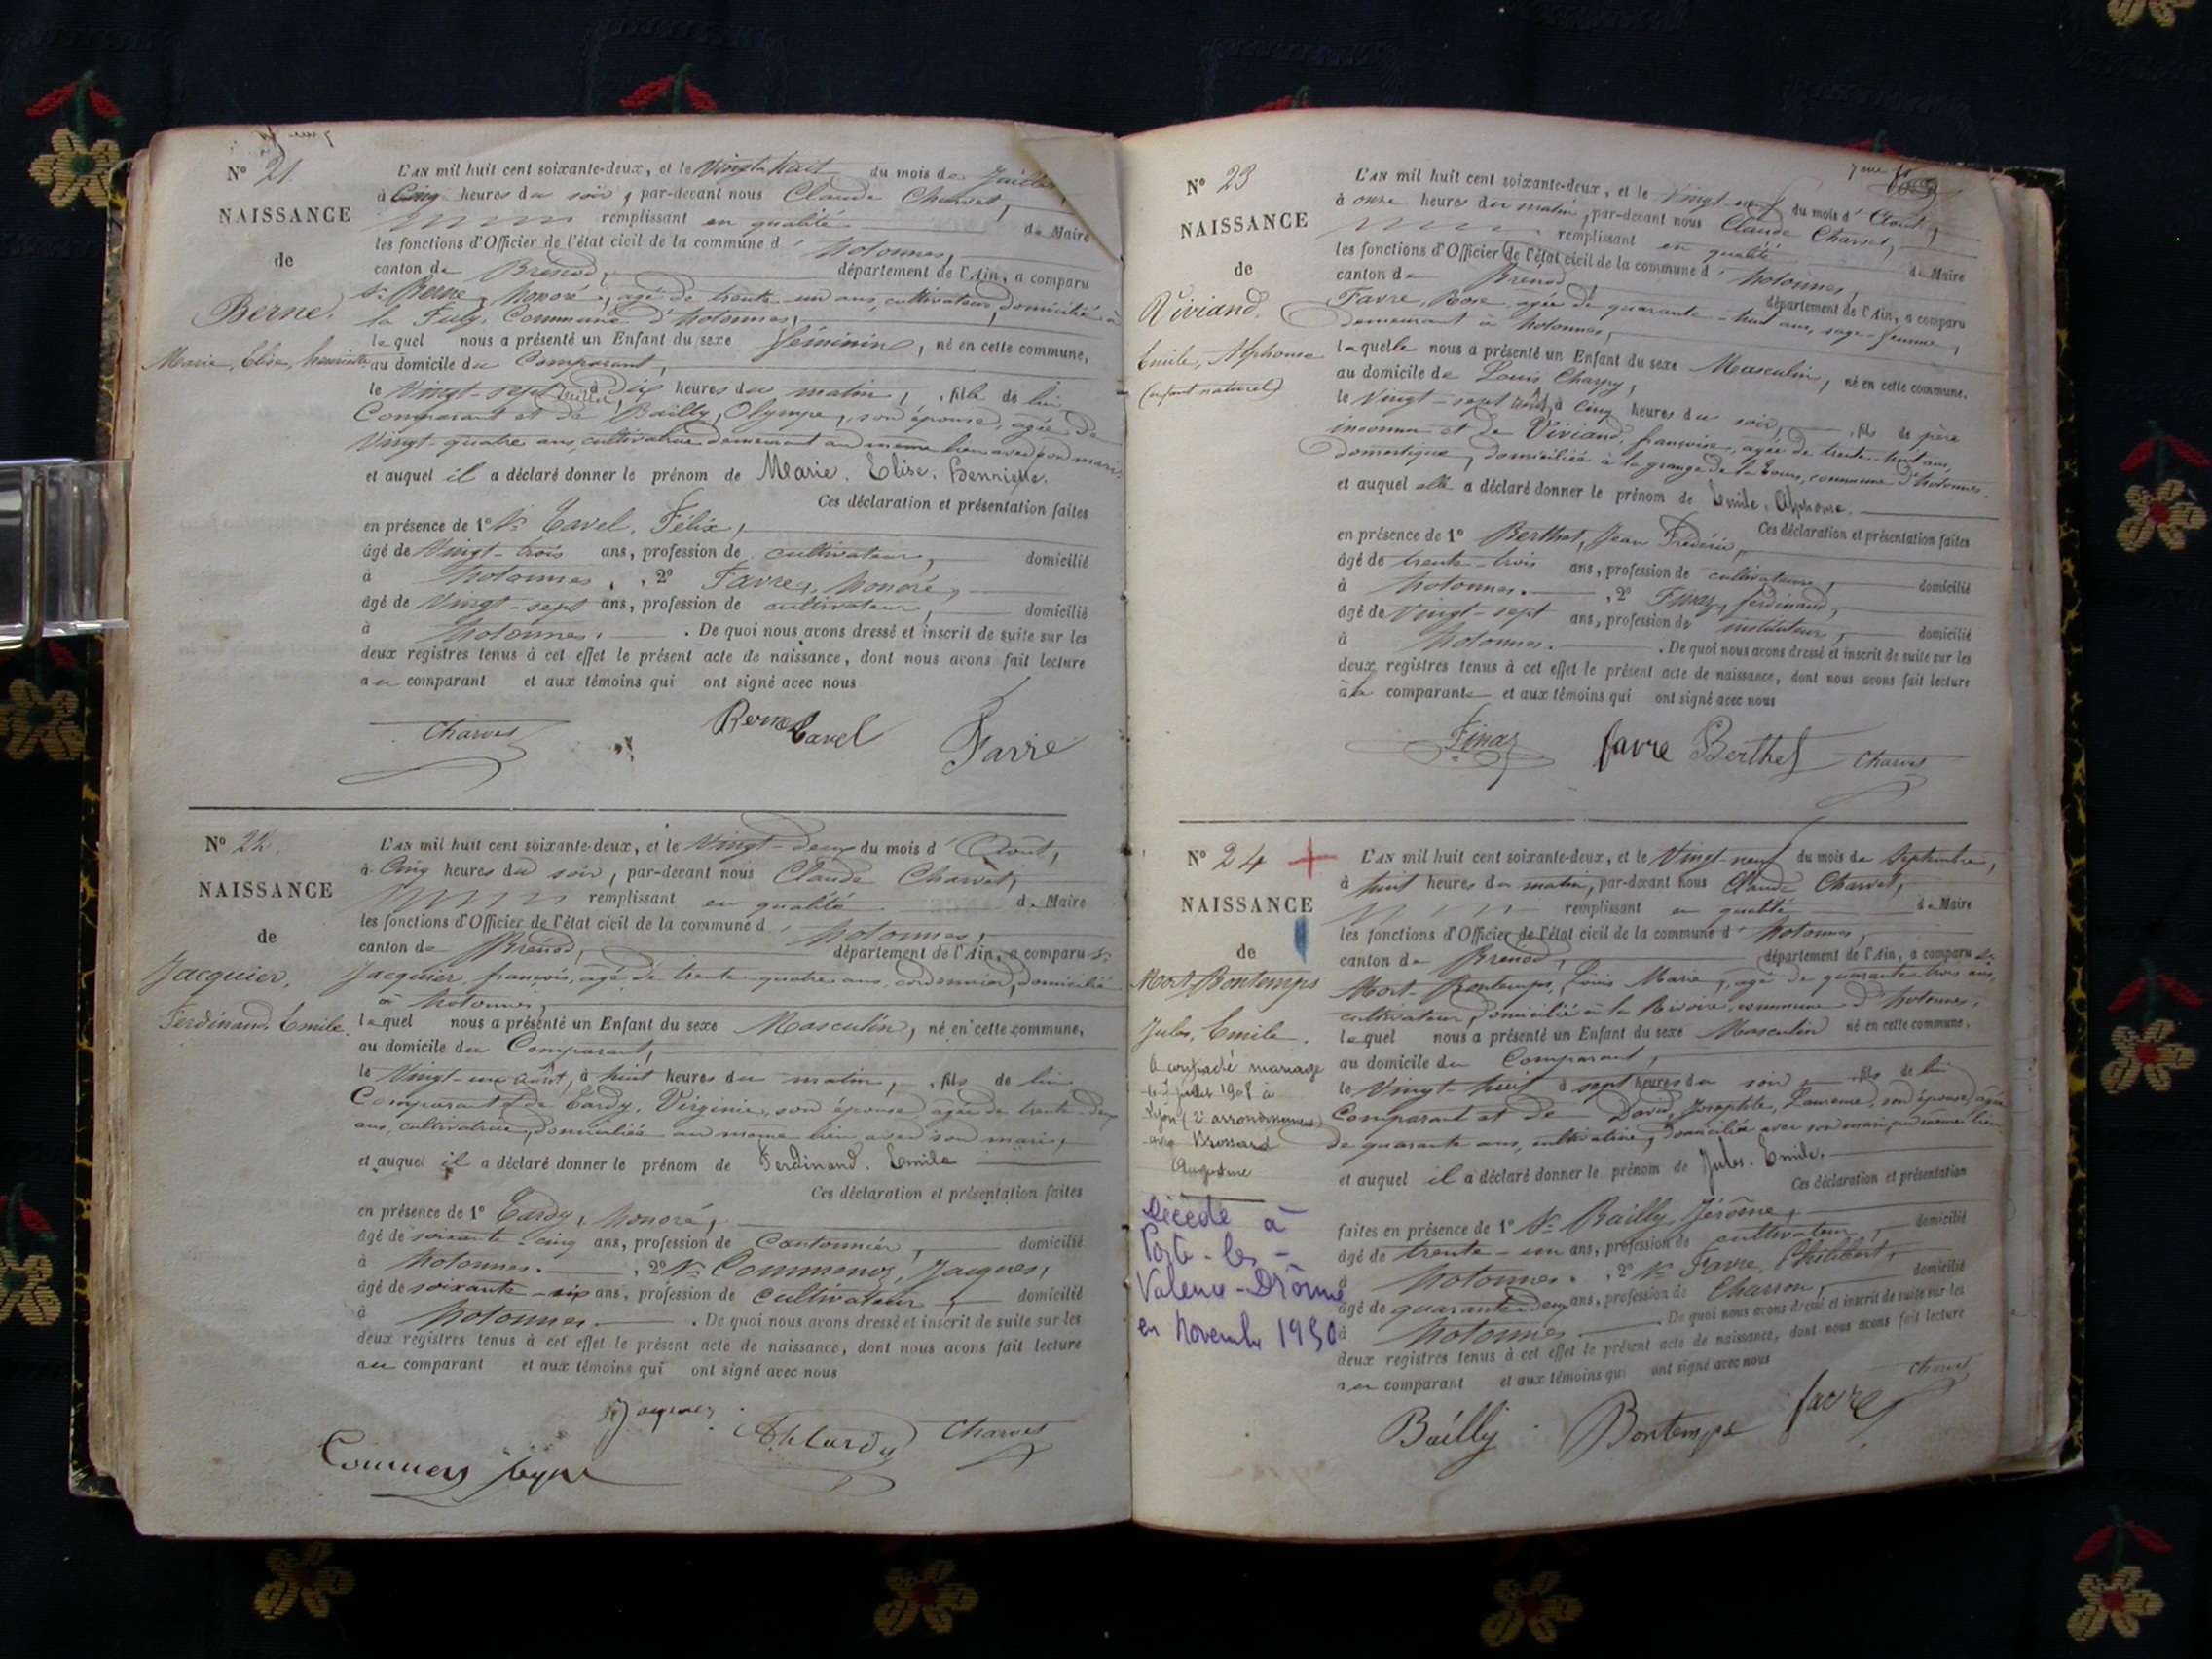 N° 21.
NAISSANCE
de
Berne.
Marie, Elise, henriette
L'AN mil huit cent soixante-deux, et le Vingt-huit du mois de Juillet,
à Cinq heures du soir, par-devant nous Claude Charvet,
remplissant en qualité de Maire
les fonctions d'Officier de l'état civil de la commune d'hotonnes,
canton de Brénod, département de l'Ain, a comparu
Sr. Berne, honoré, agé de trente un ans, cultivateur, domicilié à
la Commune d'hotonnes,
lequel nous a présenté un Enfant du sexe féminin, né en cette commune,
au domicile du Comparant,
le Vingt-sept juillet, à dix heures du matin, fille de lui
Comparant et de Bailly, Olympe, son épouse, agée de
Vingt-quatre ans, cultivatrice demeurant au même lieu avec son mari,
et auquel il a déclaré donner le prénom de Marie. Elise. henriette.
Ces déclaration et présentation faites
en présence de 1° Sr. Tavel, Félix,
âgé de Vingt-trois ans, profession de cultivateur, domicilié
à hotonnes, 2° Favre, honoré,
âgé de Vingt-sept ans, profession de cultivateur, domicilié
à hotonnes. De quoi nous avons dressé et inscrit de suite sur les
deux registres tenus à cet effet le présent acte de naissance, dont nous avons fait lecture
au comparant et aux témoins qui ont signé avec nous
Charvet Berne Tavel Favre
N° 22.
NAISSANCE
de
Jacquier,
Ferdinand, Emile.
L'AN mil huit cent soixante-deux, et le Vingt-deux du mois d'Août,
à Cinq heures du soir, par-devant nous Claude Charvet,
remplissant en qualité de Maire
les fonctions d'Officier de l'état civil de la commune d'hotonnes,
canton de Brénod, département de l'Ain, a comparu Sr.
Jacquier, françois, agé de trente-quatre ans, cordonnier, domicilié
à hotonnes,
lequel nous a présenté un Enfant du sexe Masculin, né en cette commune,
au domicile du Comparant,
le Vingt-un août, à huit heures du matin, fils de lui
Comparant & de Tardy, Virginie, son épouse, agée de trente-deux
ans, cultivatrice, domiciliée au même lieu avec son mari,
et auquel il a déclaré donner le prénom de Ferdinand. Emile
Ces déclaration et présentation faites
en présence de 1° Tardy, honoré,
âgé de soixante-cinq ans, profession de Cantonnier, domicilié
à hotonnes. 2° Sr. Jacques,
âgé de soixante-six ans, profession de cultivateur, domicilié
à hotonnes. De quoi nous avons dressé et inscrit de suite sur les
deux registres tenus à cet effet le présent acte de naissance, dont nous avons fait lecture
au comparant et aux témoins qui ont signé avec nous
Charvet
N° 23
NAISSANCE
de
Viviand.
Emile, Alphonse
(enfant naturel)
7me fo
L'AN mil huit cent soixante-deux, et le Vingt-neuf du mois d'Août,
à onze heures du matin, par-devant nous Claude Charvet,
remplissant en qualité de Maire
les fonctions d'Officier de l'état civil de la commune d'hotonnes,
canton de Brénod, département de l'Ain, a comparu
Favre, Rose, agée de quarante-huit ans, sage-femme,
demeurant à hotonnes,
laquelle nous a présenté un Enfant du sexe Masculin, né en cette commune,
au domicile de Louis Charpy,
le Vingt-sept août, à cinq heures du soir, fils de père
inconnu et de Viviand, françoise, agée de trente-huit ans,
domestique, domiciliée à la grange de la commune d'hotonnes.
et auquel elle a déclaré donner le prénom de Emile, Alphonse.
Ces déclaration et présentation faites
en présence de 1° Berthet, Jean Frédéric,
âgé de trente-trois ans, profession de cultivateur, domicilié
à hotonnes. 2° Finaz, ferdinand,
âgé de Vingt-sept ans, profession de instituteur, domicilié
à hotonnes. De quoi nous avons dressé et inscrit de suite sur les
deux registres tenus à cet effet le présent acte de naissance, dont nous avons fait lecture
à la comparante et aux témoins qui ont signé avec nous
Finaz favre Berthet Charvet
N° 24
NAISSANCE
de
Mort-Bontemps
Jules, Emile.
A contracté mariage
le juillet 1908 à
Lyon (2e arrondissement)
avec Brossard
Augustine
Décédé à
Porte-les-
Valence-Drôme
en Novembre 1950
L'AN mil huit cent soixante-deux, et le Vingt-neuf du mois de Septembre,
à huit heures du matin, par-devant nous Claude Charvet,
remplissant en qualité de Maire
les fonctions d'Officier de l'état civil de la commune d'hotonnes,
canton de Brénod, département de l'Ain, a comparu Sr.
Mort-Bontemps, Louis Marie, agé de quarante-trois ans,
cultivateur, domicilié à la Rivoire, commune d'hotonnes,
lequel nous a présenté un Enfant du sexe Masculin né en cette commune,
au domicile du Comparant,
le Vingt-huit à sept heures du soir, fils de lui
Comparant et de David, Josephte, Laurence, son épouse, agée
de quarante ans, cultivatrice, domiciliée avec son mari, au même lieu
et auquel il a déclaré donner le prénom de Jules. Emile.
Ces déclaration et présentation
faites en présence de 1° Sr. Bailly, Jérôme,
âgé de trente-un ans, profession de cultivateur, domicilié
à hotonnes. 2° Sr. Favre, Philibert,
âgé de quarante-deux ans, profession de Charron, domicilié
à hotonnes. De quoi nous avons dressé et inscrit de suite sur les
deux registres tenus à cet effet le présent acte de naissance, dont nous avons fait lecture
au comparant et aux témoins qui ont signé avec nous
Bailly Bontemps favre Charvet